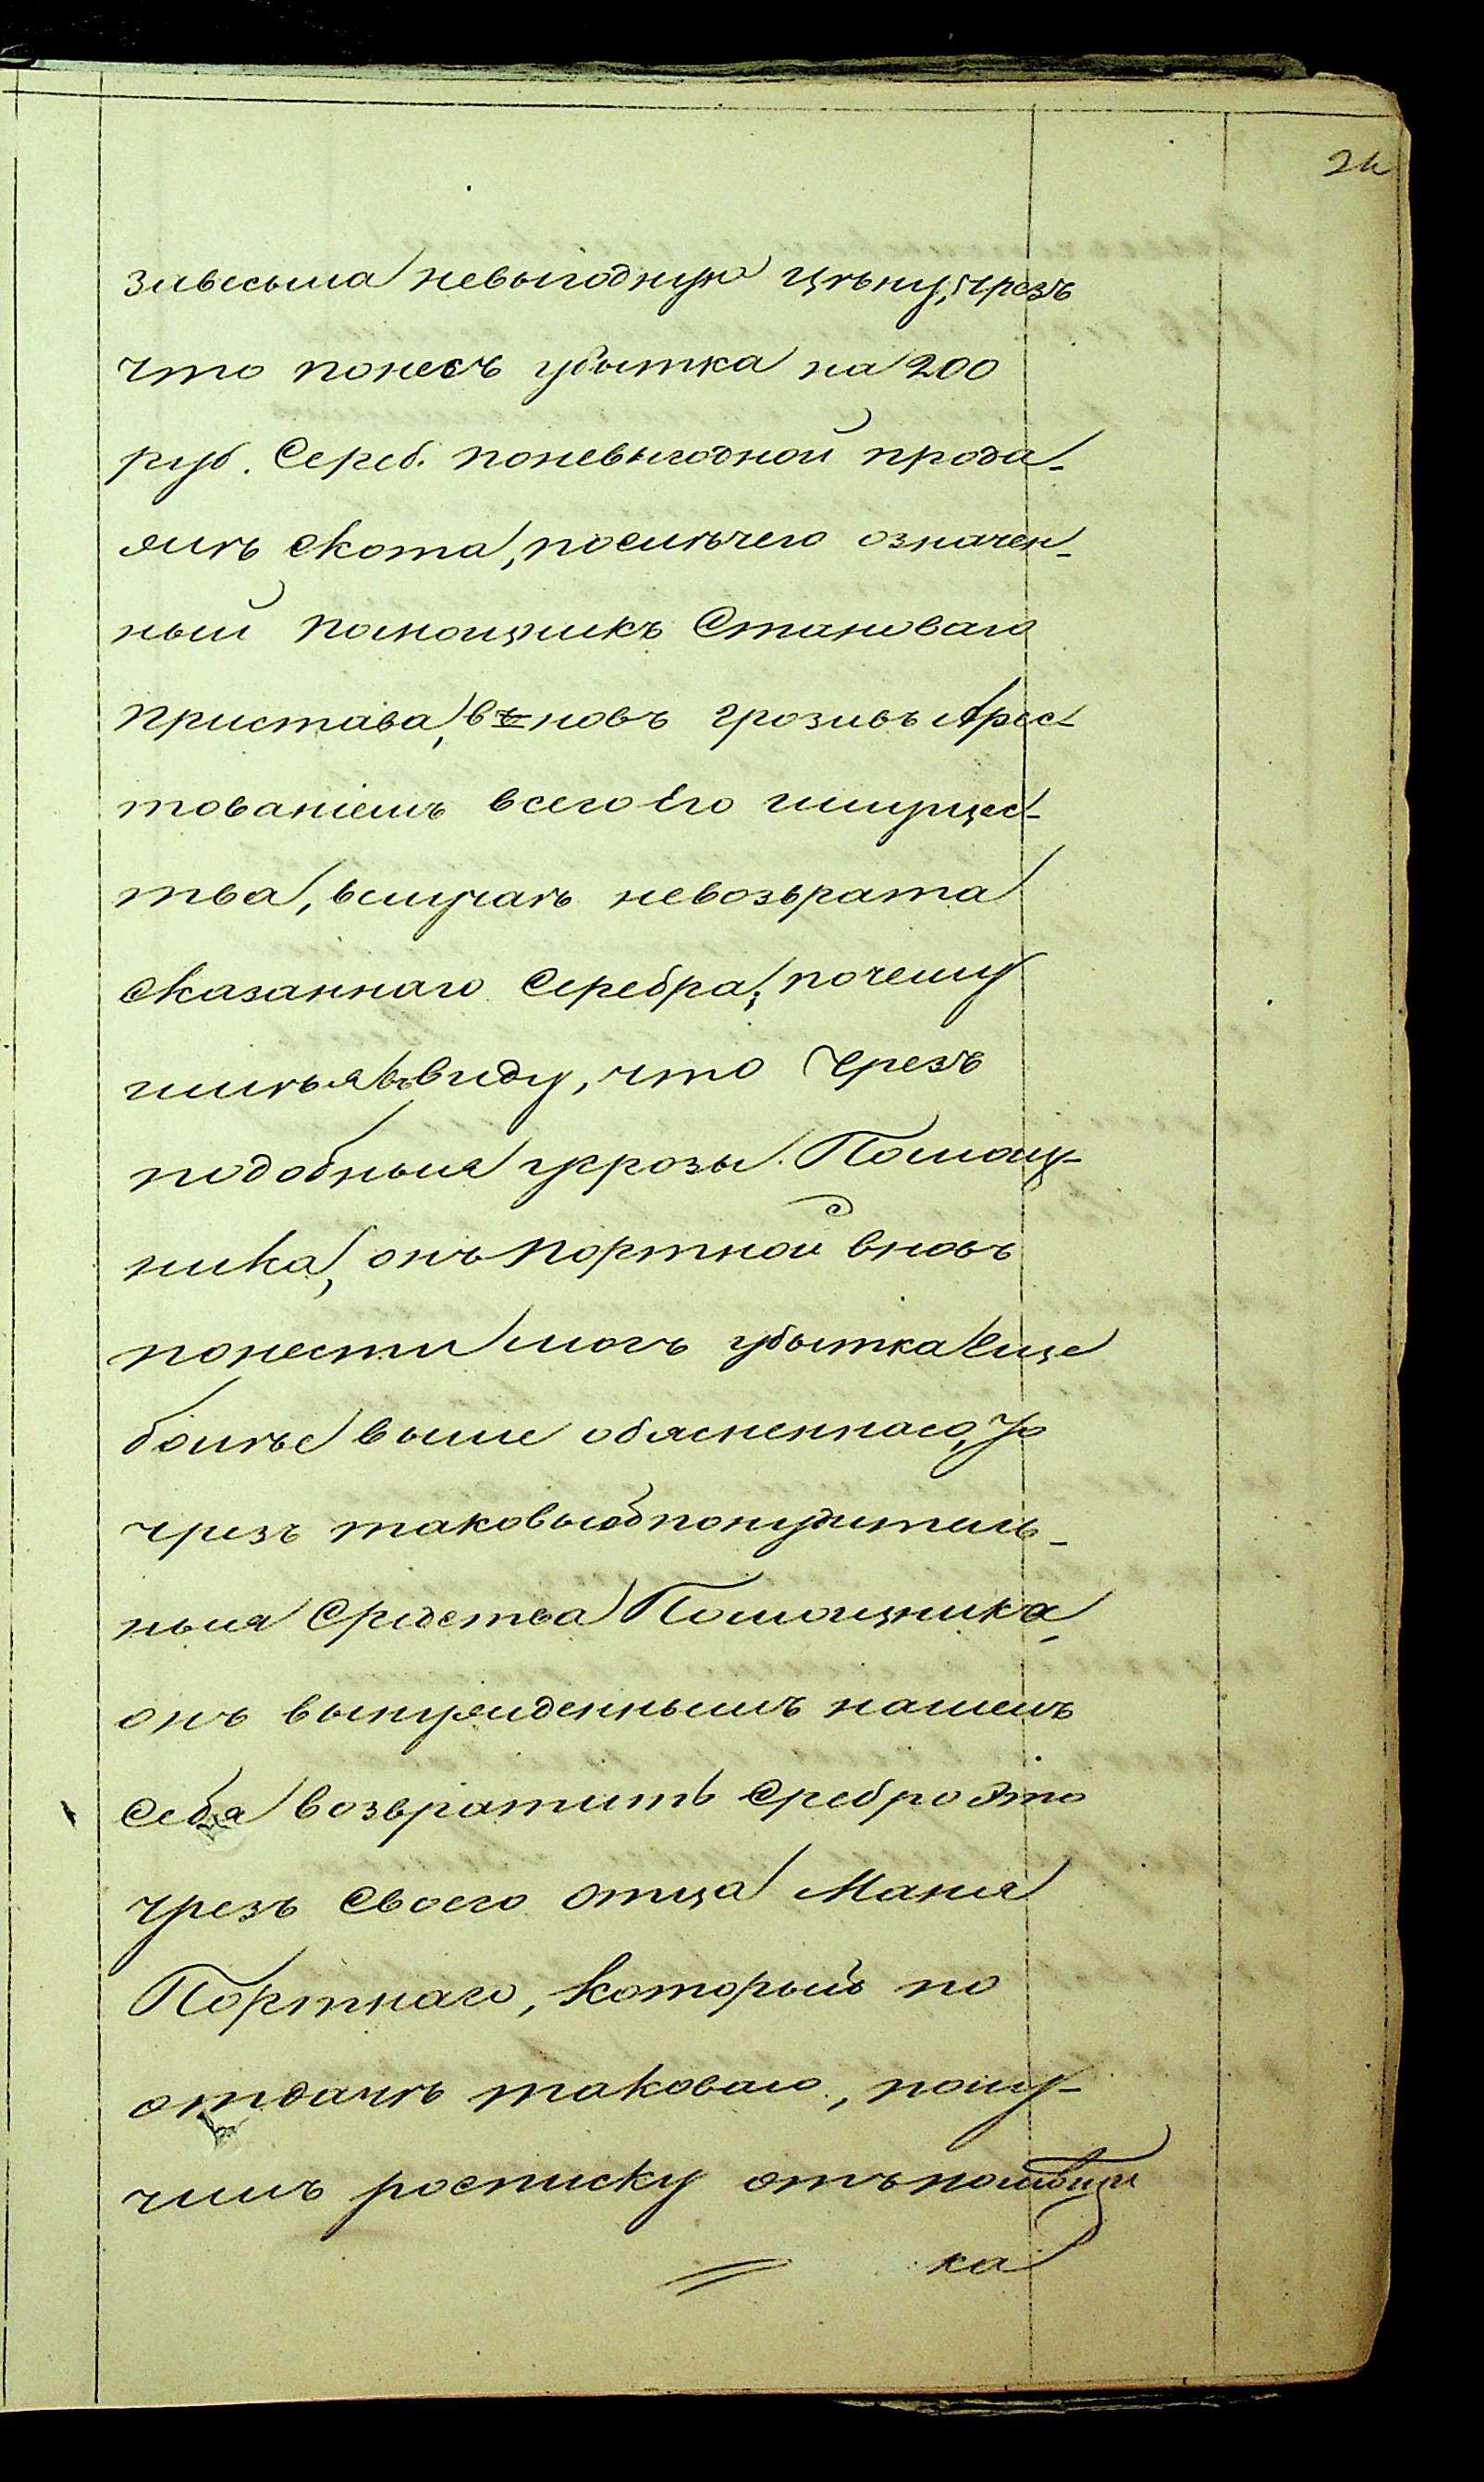 24
завесьма невыгодную цѣну, чрезъ
что понесъ убытка на 200
руб. Сереб. поневыгодной прода-
жѣ скота, послѣчего означен-
ный помощникъ Становаго
пристава, въновь грозивъ Арес-
тованіемъ всего Его имущес-
тва, вслучаѣ невозврата
сказаннаго Серебра; почему
имѣя ввиду, что Чрезъ
подобныя угрозы Помощ-
ника, онъ портной вновь
понести могъ убытка Еще
болѣе выше обясненнаго, то
чрезъ таковыя понудитель-
ныя Средства Помощника,
онъ вынужденнымъ нашелъ
Себя возвратить Сребро Это
чрезъ Своего Отца Маня
Портнаго, Который по
отдачѣ таковаго, полу-
чилъ росписку отъ помощни
ка